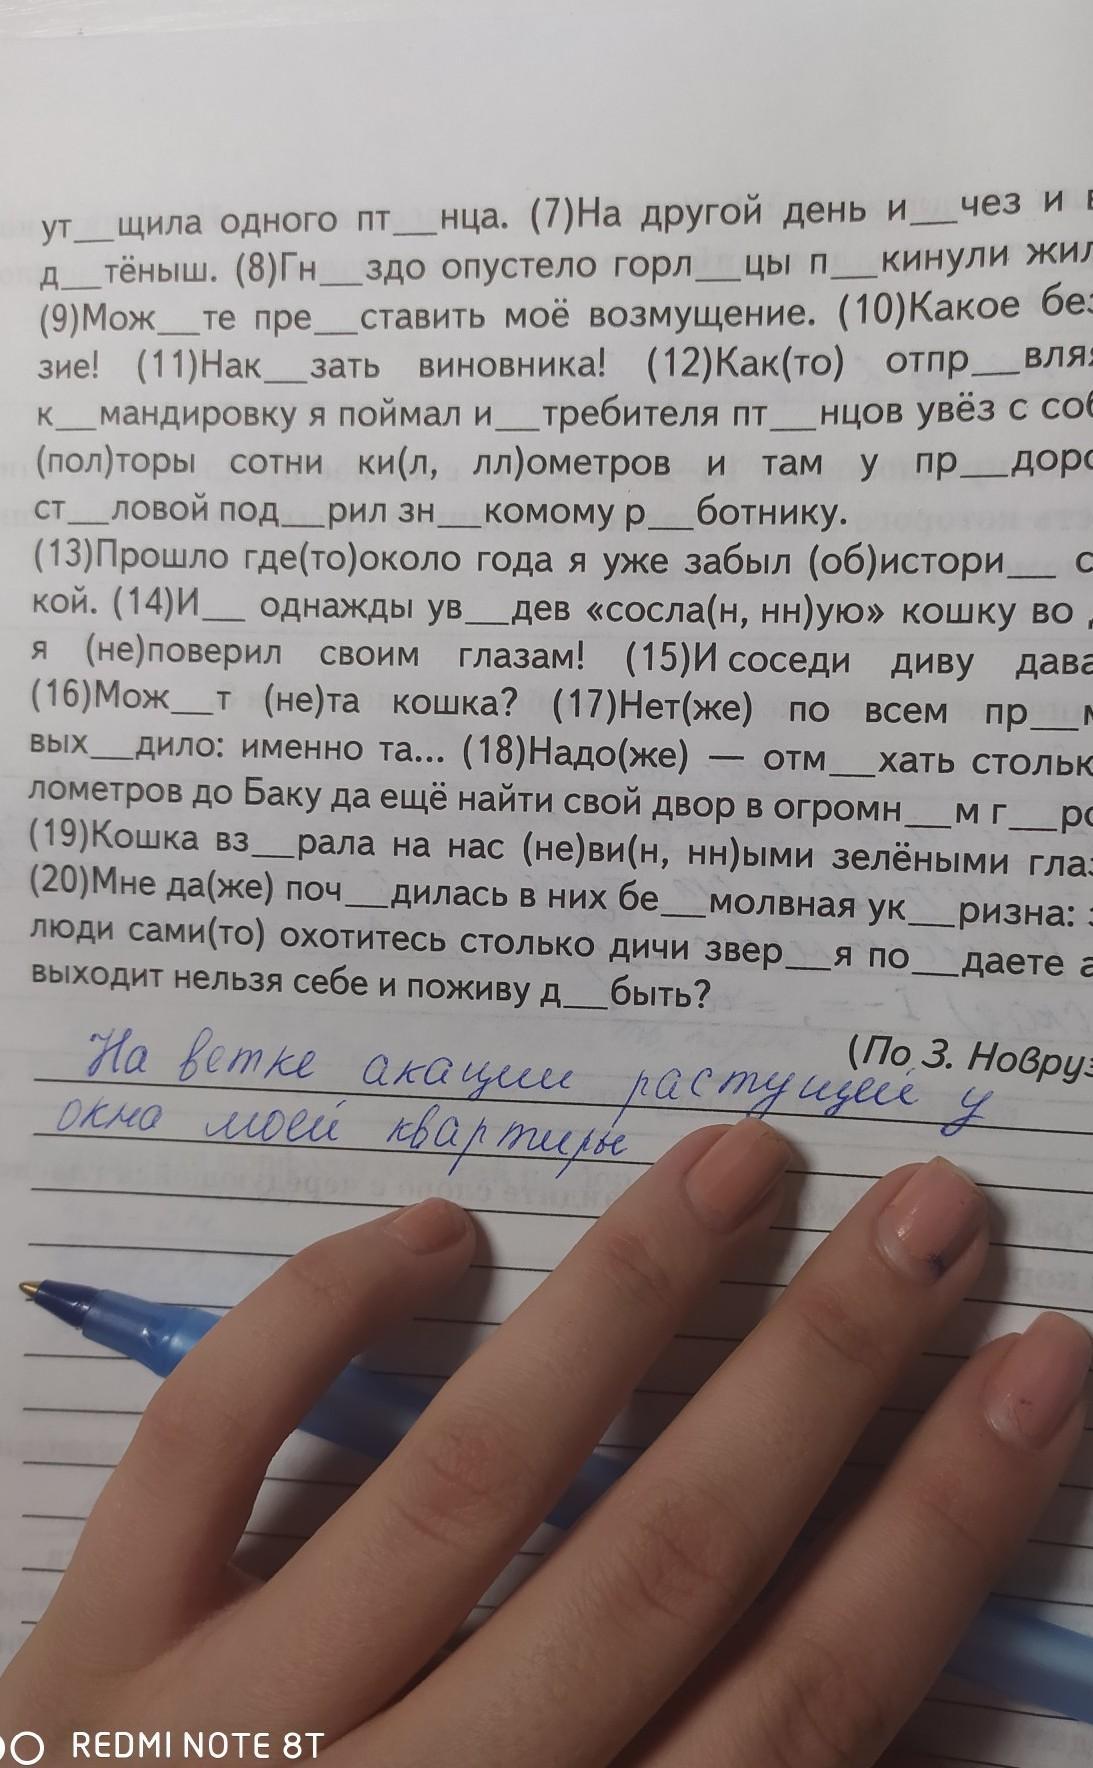 ут__щила одного пт__нца. (7)На другой день и__чез и
д__тёныш. (8)Гн__здо опустело горл__цы п__кинули
(9)Мож__те пре__ставить моё возмущение. (10)Какое
зие! (11)Нак__зать виновника! (12)Как(то)
к__мандировку я поймал и__требителя пт__нцов увёз с
(пол)торы сотни ки(л, лл)ометров и там у
ст__ловой под__рил зн__комому р__ботнику.
(13)Прошло где(то)около года я уже забыл (об)истори__
кой. (14)И__ однажды ув__дев «сосла(н, нн)ую» кошку во
я (не)поверил своим глазам! (15)И соседи диву
(16)Мож__т (не)та кошка? (17)Нет(же) по всем
вых__дило: именно та... (18)Надо(же) — отм__хать
лометров до Баку да ещё найти свой двор в огромн__м
(19)Кошка вз__рала на нас (не)ви(н, нн)ыми зелёными
(20)Мне да(же) поч__дилась в них бе__молвная ук__ризна:
люди сами(то) охотитесь столько дичи звер__я по__даете
выходит нельзя себе и поживу д__быть?
(По З.
На ветке акации растущей у
окна моей квартиры
REDMI NOTE 8T